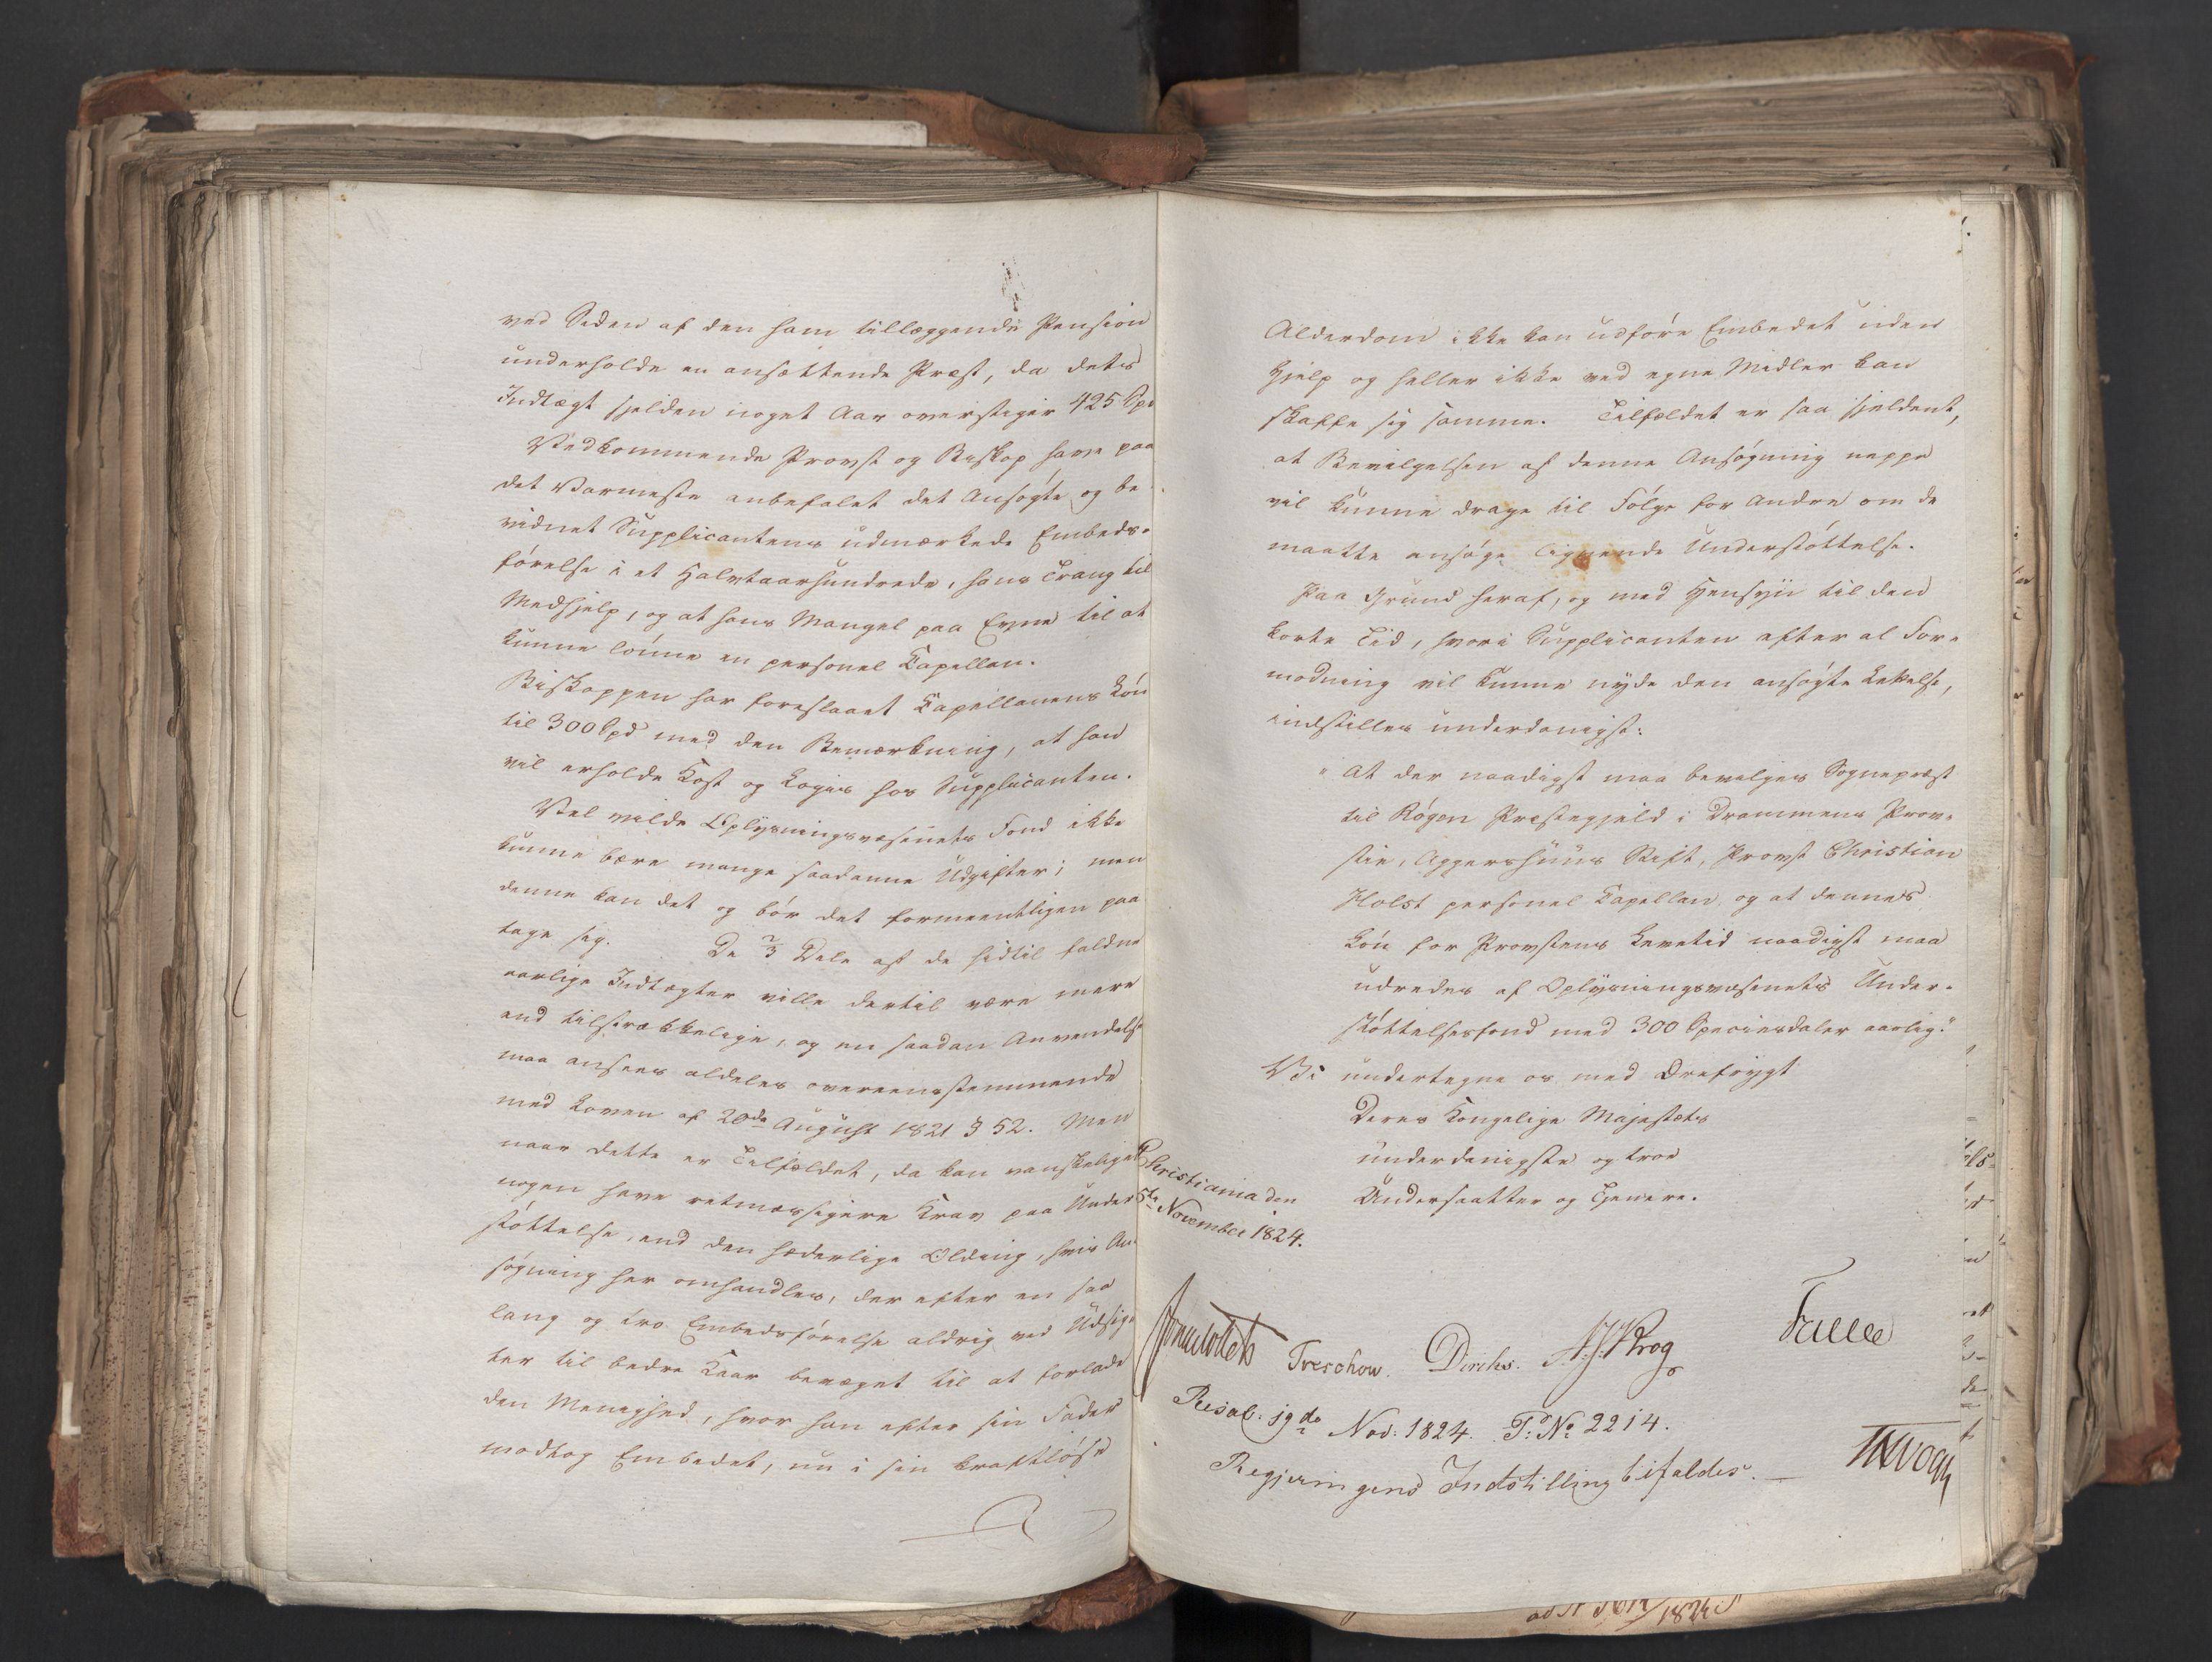 ved Siden af den ham tillæggende Pension
underholde en ansættende Præst, da dets
Indtægt sjelden noget Aar overstiger 425 Spd
Vedkommende Provst og Biskop have paa
det Varmeste anbefalet det Ansøgte og be-
vidnet Supplicantens udmærkede Embeds-
førelse i et Halvtaarhundrede, hans Trang til
Medhjelp, og at hans Mangel paa Evne til at
kunne lønne en personel Capellan.
Biskoppen har foreslaaet Capellanens Løn
til 300 Spd med den Bemærkning, at han
vil erholde Kost og Logis hos Supplicanten.
Vel vilde Oplysningsvæsenets Fond ikke
kunne bære mange saadanne Udgifter; men
denne kan det og bør det formeentligen paa
tage sig. De 2/3 Dele af de hidtil faldne
aarlige Indtægter ville dertil være mere
end tilstrækkelige, og en saadan Anvendelse
maa ansees aldeles overeensstemmende
med Loven af 20de August 1821 § 52. Men
naar dette er Tilfældet, da kan vanskeligen
nogen have retmæssigere Krav paa Under
støttelse, end den hæderlige Olding, hvis An
søgning her omhandles, der efter en saa
lang og tro Embedsførelse aldrig ved Udsig
ter til bedre Kaar bevæget til at forlade
den Menighed, hvor han efter sin Fader
modtog Embedet, nu i sin kraftløse
Alderdom ikke kan udføre Embedet uden
Hjelp og heller ikke ved egne Midler kan
skaffe sig samme. Tilfældet er saa sjeldent,
at Bevilgelsen af denne Ansøgning neppe
vil kunne drage til Følge for Andre om de
maatte ansøge lignende Understøttelse.
Paa Grund heraf, og med Hensyn til den
korte Tid, hvori Supplicanten efter al For-
modning vil kunne nyde den ansøgte Lettelse,
indstilles underdanigst:
"At der naadigst maa bevilges Sognepræst
til Røgen Præstegjeld i Drammens Prov-
stie, Aggershuus Stift, Provst Christian
Holst personel Capellan, og at dennes
Løn for Provstens Levetid naadigst maa
udredes af Oplysningsvæsenets Under-
støttelsesfond med 300 Speciesdaler aarlig."
Vi undertegne os med Ærefrygt
Deres Kongelige Majestæts
underdanigste og troe
Undersaatter og Tjenere.
Christiania den
5te November 1824.
Treschow. Diriks. A. J. Krog
Resol: 19de Nov: 1824. P: No 2214.
Regjeringens Indstilling bifaldes. —